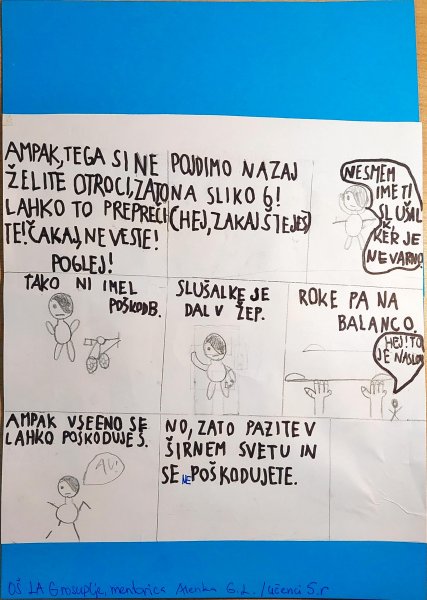 AMPAK, TEGA SI NE
ŽELITE OTROCI, ZATO
LAHKO TO PREPREČI
TE! ČAKAJ, NE VESTE!
POGLEJ!
POJDIMO NAZAJ
NA SLIKO 6!
(HEJ, ZAKAJ ŠTEJEŠ)
NESMEM
IMETI
SLUŠALK
KER JE
NEVARNO.
TAKO NI IMEL
POŠKODB.
SLUŠALKE JE
DAL V ŽEP.
ROKE PA NA
BALANCO.
HEJ! TO
JE NASLOV
AMPAK VSEENO SE
LAHKO POŠKODUJEŠ.
AU!
NO, ZATO PAZITE V
ŠIRNEM SVETU IN
SE NE POŠKODUJETE.
OŠ LA Grosuplje, mentorica Alenka G. L. / učenci 5. r